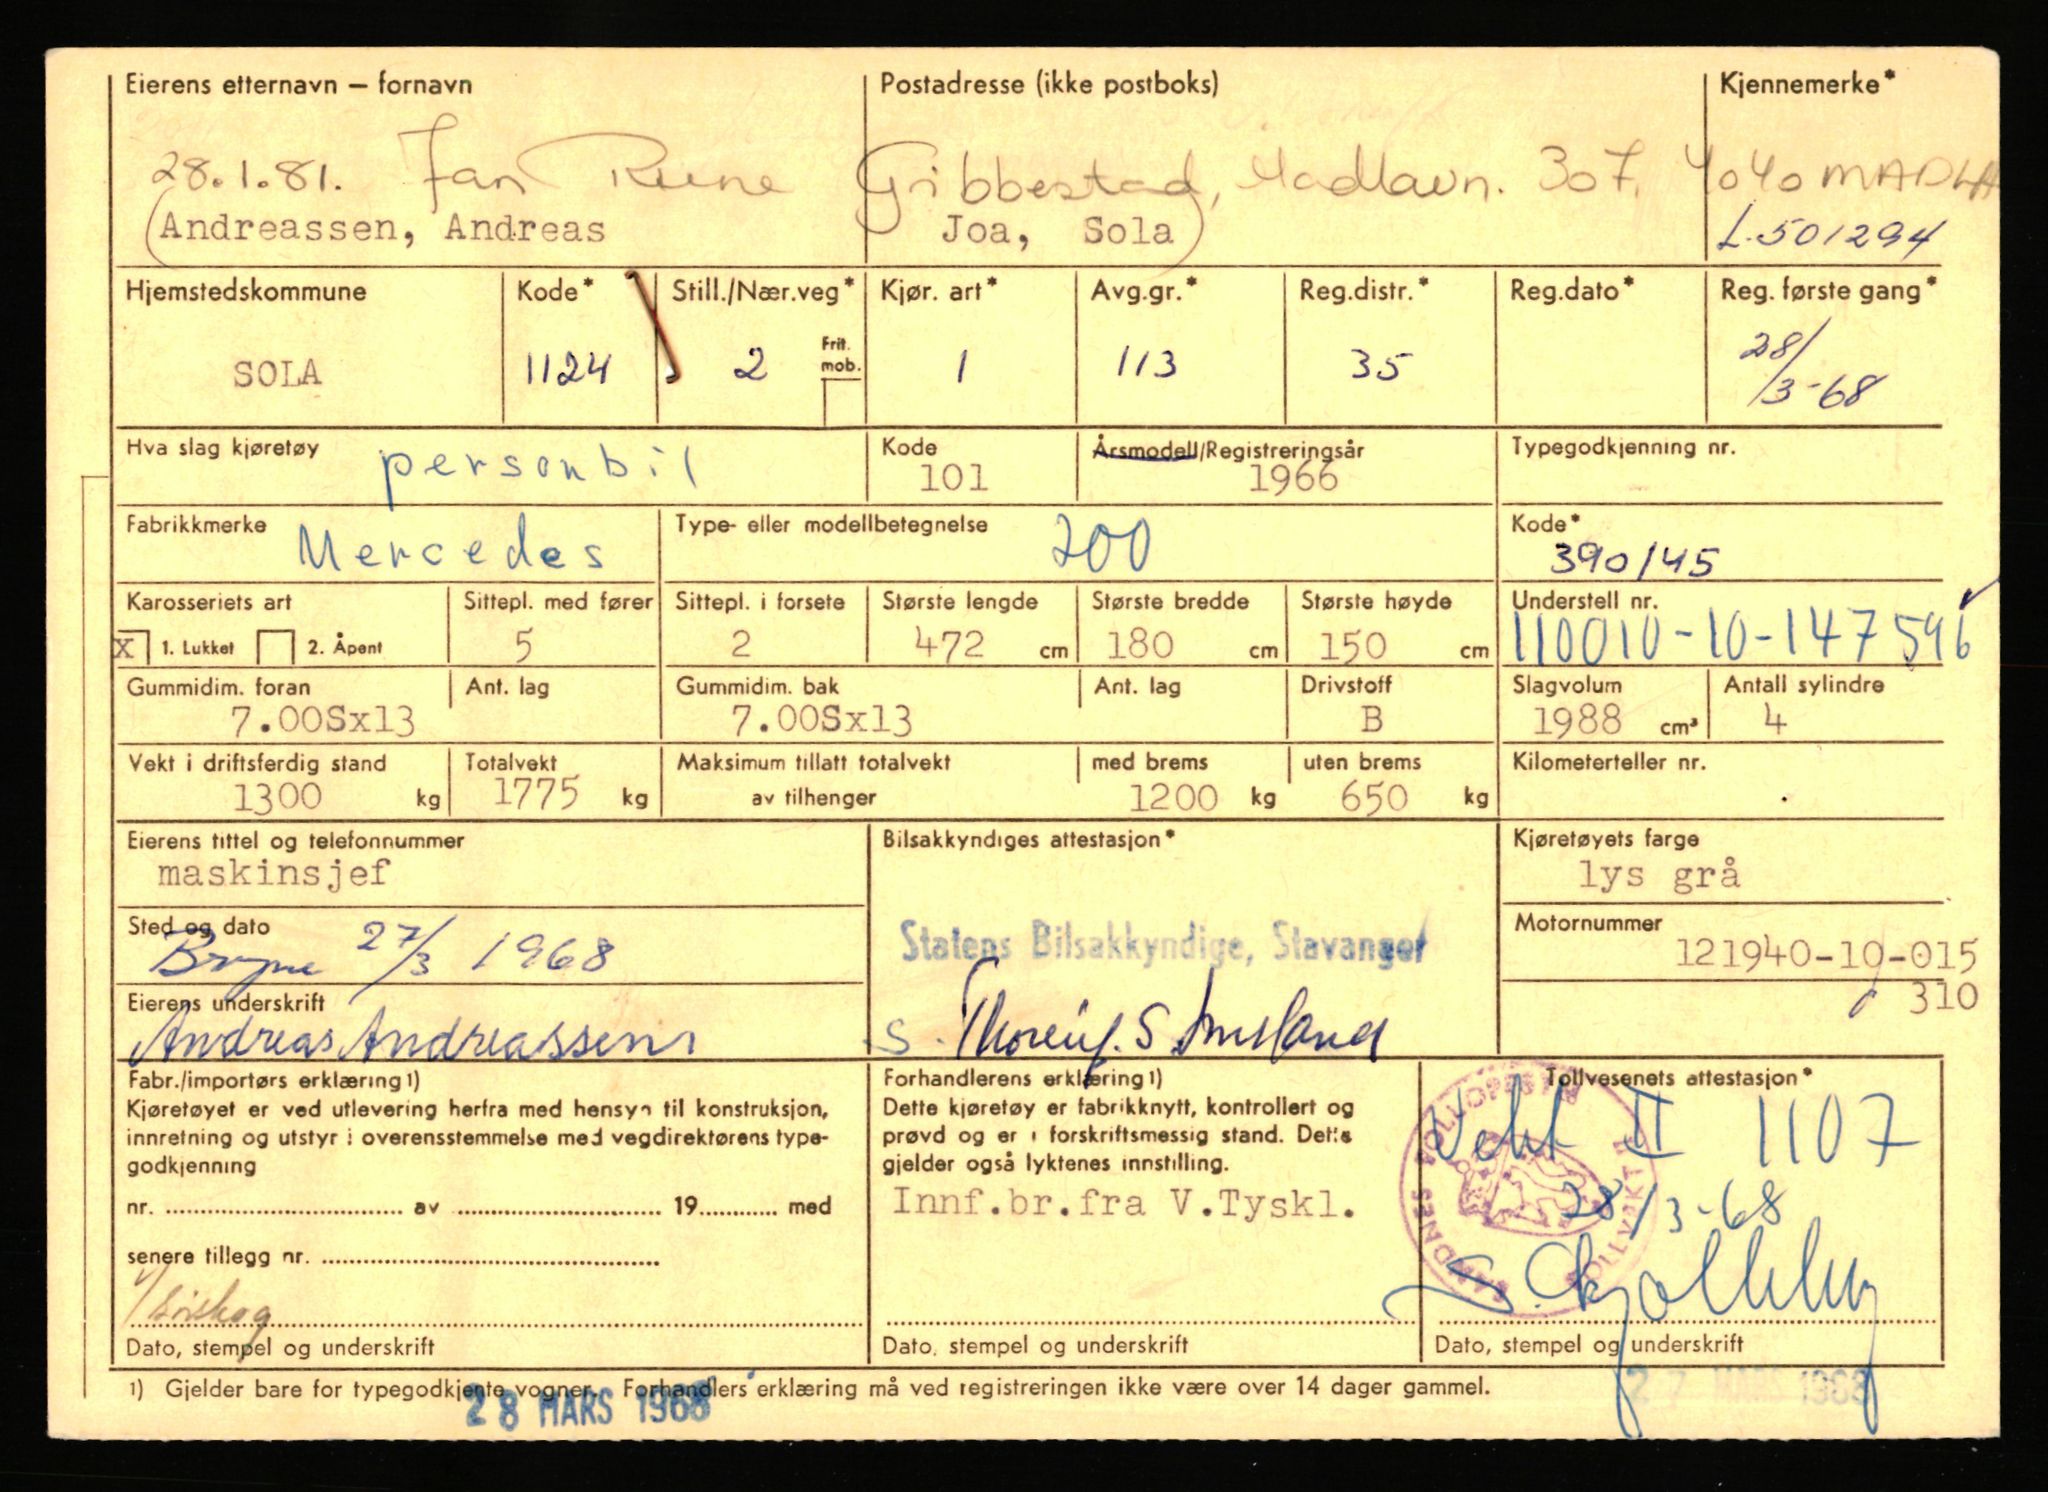 Eierens etternavn – fornavn   Postadresse (ikke postboks)   Kjennemerke*
28.1.81. Jan Rune Gribbestad, Madlavn. 307. 4040 MADLA
(Andreassen, Andreas   Joa, Sola)   L-501294
Hjemstedskommune   Kode*   Still./Nær.veg*   Kjør. art*   Avg.gr.*   Reg.distr.*   Reg.dato*   Reg. første gang*
Frit. mob.
SOLA   1124   2   1   113   35   28/3-68
Hva slag kjøretøy   Kode   Årsmodell/Registreringsår   Typegodkjenning nr.
personbil   101   1966
Fabrikkmerke   Type- eller modellbetegnelse   Kode*
Mercedes   200   390/45
Karosseriets art   Sittepl. med fører   Sittepl. i forsete   Største lengde   Største bredde   Største høyde   Understell nr.
X 1. Lukket   2. Åpent   5   2   472 cm   180 cm   150 cm   110010-10-147596
Gummidim. foran   Ant. lag   Gummidim. bak   Ant. lag   Drivstoff   Slagvolum   Antall sylindre
7.00Sx13   7.00Sx13   B   1988 cm³   4
Vekt i driftsferdig stand   Totalvekt   Maksimum tillatt totalvekt   med brems   uten brems   Kilometerteller nr.
1300 kg   1775 kg   av tilhenger   1200 kg   650 kg
Eierens tittel og telefonnummer   Bilsakkyndiges attestasjon*   Kjøretøyets farge
maskinsjef   lys grå
Sted og dato   Motornummer
Bryne 27/3 1968   Statens Bilsakkyndige, Stavanger   121940-10-015
310
Eierens underskrift
Andreas Andreassen
Fabr./importørs erklæring1)   Forhandlerens erklæring1)   Tollvesenets attestasjon*
Kjøretøyet er ved utlevering herfra med hensyn til konstruksjon,   Dette kjøretøy er fabrikknytt, kontrollert og
innretning og utstyr i overensstemmelse med vegdirektørens type-   prøvd og er i forskriftsmessig stand. Dette
godkjenning   gjelder også lyktenes innstilling.
Vekt II 1107
nr. ........ av ........ 19........ med   Innf.br.fra V.Tyskl.   28/3-68
senere tillegg nr. ........
Dato, stempel og underskrift   Dato, stempel og underskrift   Dato, stempel og underskrift
1) Gjelder bare for typegodkjente vogner. Forhandlers erklæring må ved registreringen ikke være over 14 dager gammel.
28 MARS 1968   27 MARS 1968